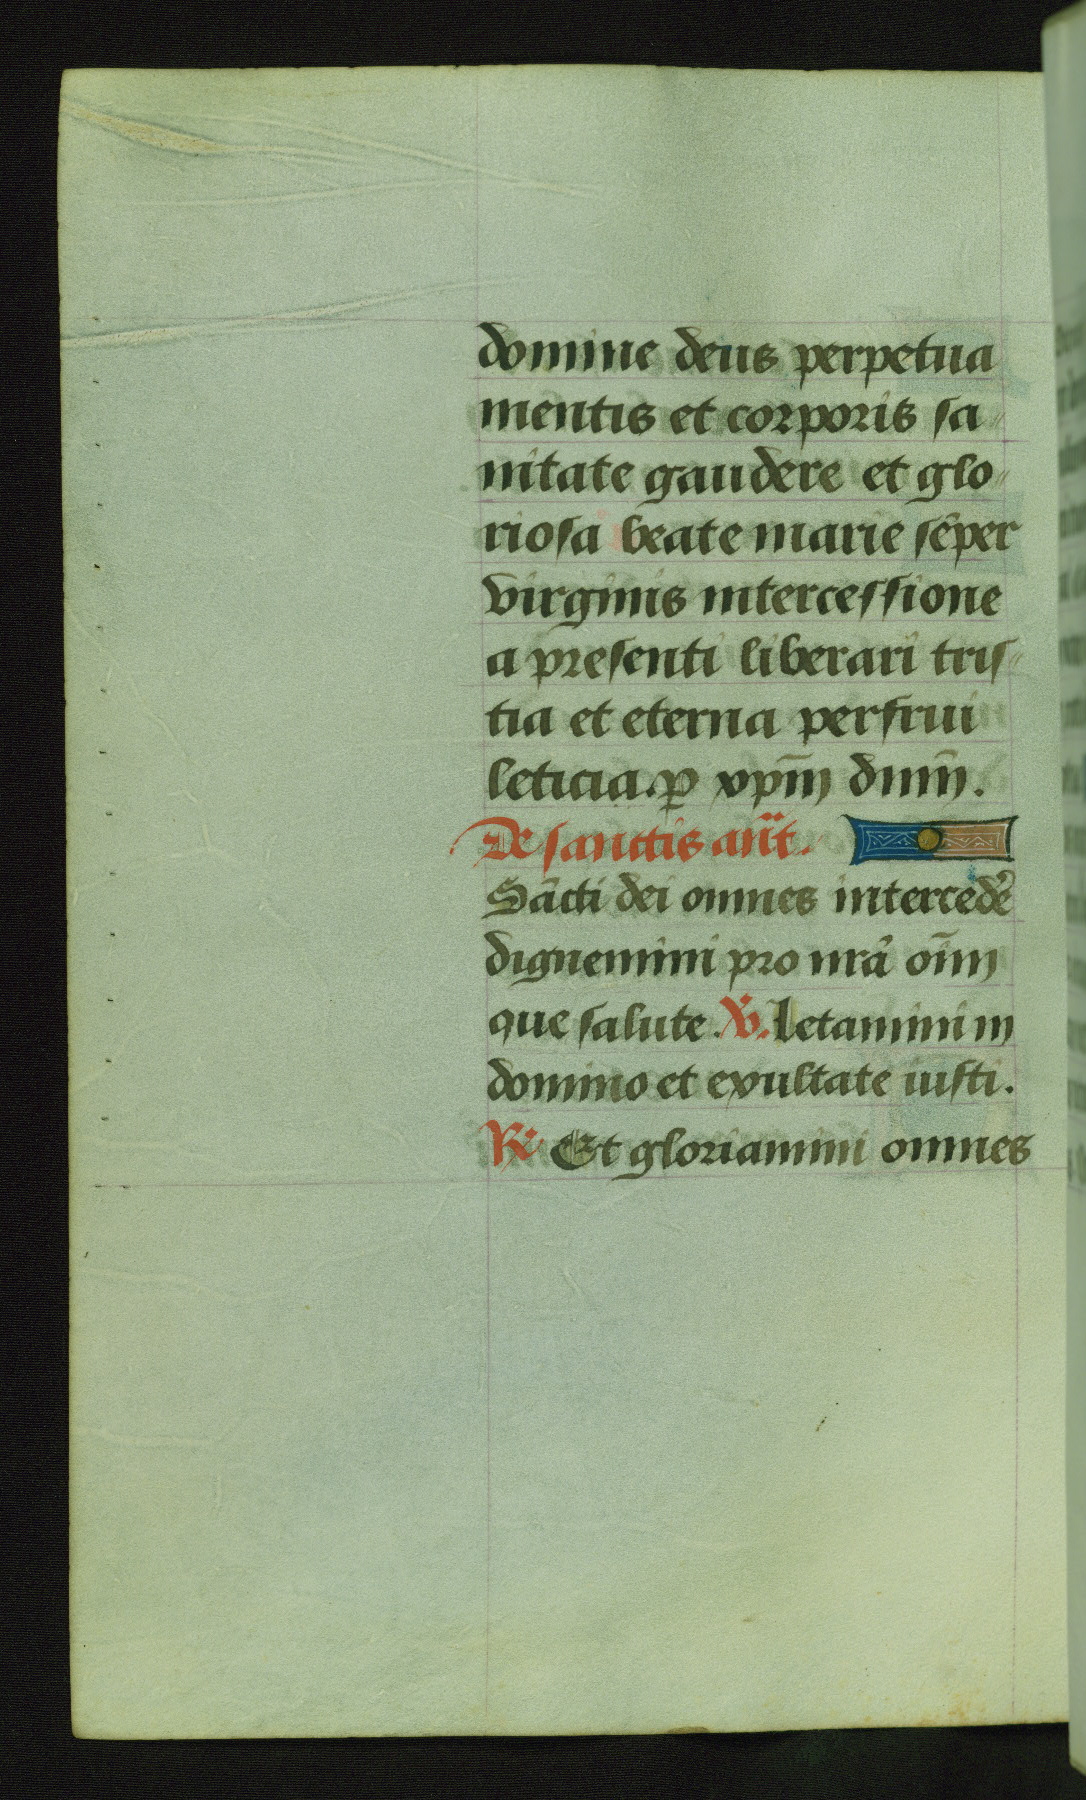 domine deus perpetua
mentis et corporis sa
nitate gaudere et glo
riosa beate marie sēper
virginis intercessione
a presenti liberari tris
tia et eterna perfrui
leticia. ꝑ xp̄m dn̄m.
De sanctis ant̄.
Sācti dei omnes intercedē
dignemini pro nrā oīm
que salute. ℣. letamini in
domino et exultate iusti.
℟ Et gloriamini omnes